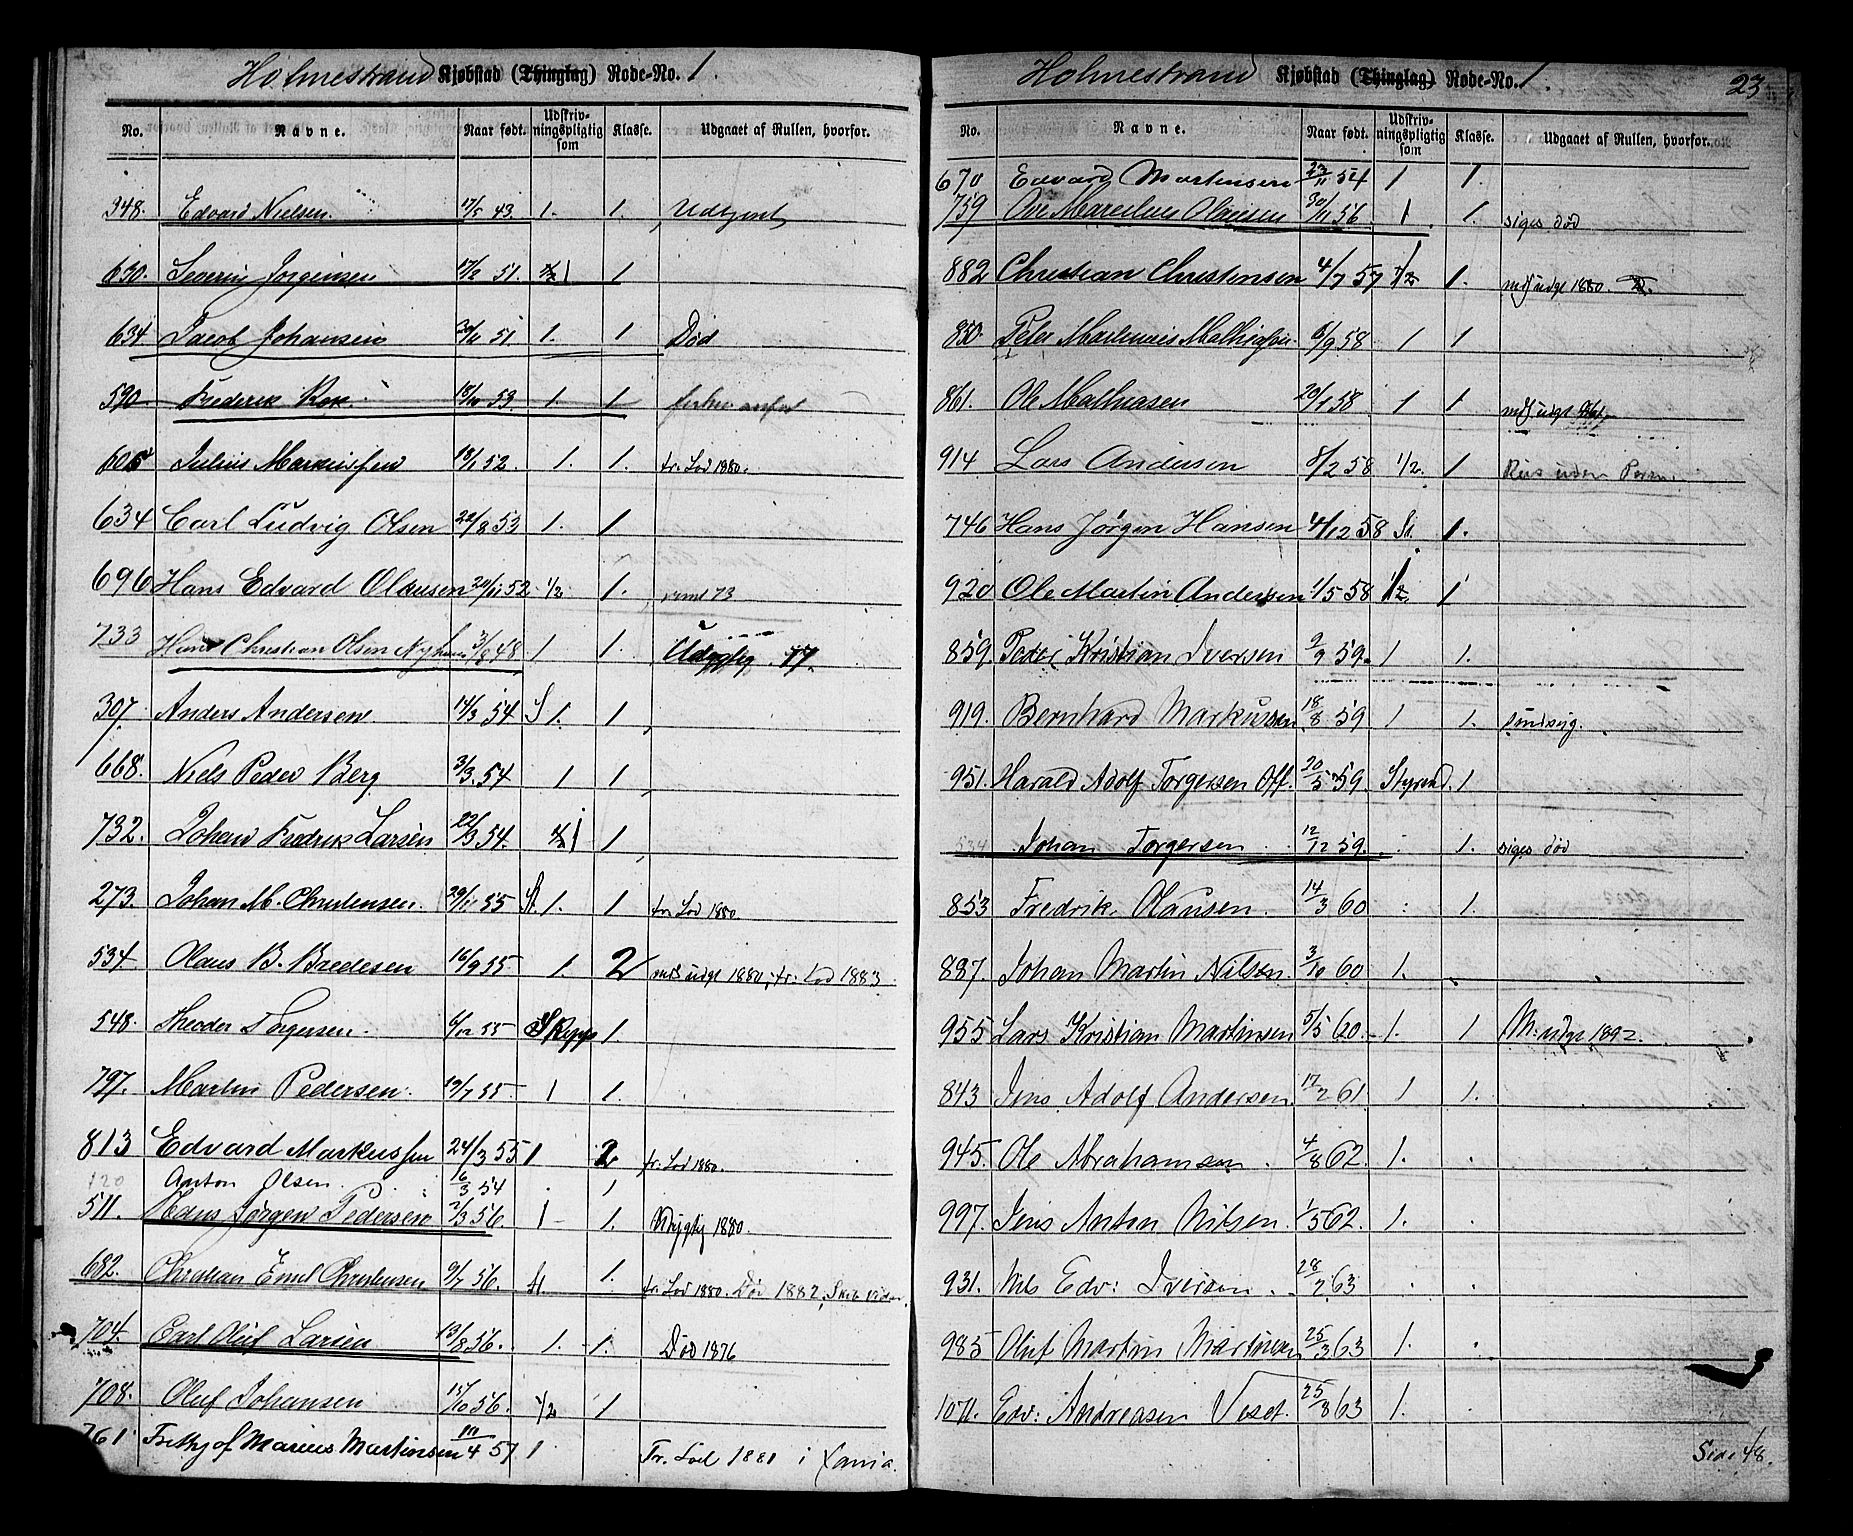 Holmestrand Kjøbstad (Thinglag) Rode-No. 1.
No. Navne. Naar født. Udskrivningspligtig som Klasse. Udgaaet af Rullen, hvorfor.
348. Edvard Nielsen. 17/5 43. 1. 1.
630. Severin Jørgensen 51. 1 1
634 Jacob Johansen 51. 1. 1 Død
590 Frederik 53. 1. 1
Julius 18/1 52. 1. 1. tr. Lod 1880.
634 Carl Ludvig Olsen 22/8 53 1. 1
696 Hans Edvard Olausen 52 1/2 1.
733 Hans Christian Olsen 48 1 1.
307. Anders Andersen 14/3 54 S 1. 1
668. Niels Peder Berg 3/3 54 1 1
732. Johan Fredrik Larsen 22/3 54. 1 1
273. Johan M. Christensen. 55 St. 1. 1 tr. Lod 1880
534. Olaus B. Bredesen 16/9 55 1. 2 mds udgt 1880, tr. Lod 1883
548. Theodor Torgersen. 6/12 55 1.
797. Martin Pedersen. 19/7 55. 1 1.
813 Edvard Markussen 24/3 55 1 2 tr. Lod 1880.
120 Anton Olsen. 16/3 54
511. Hans Jørgen Pedersen 2/3 56. 1 1. 1880
682. Christian Emil Christensen 9/7 56. St. 1. tr. Lod 1880. Død 1882,
704. Carl Oluf Larsen 13/8 56. 1. 1. Død 1876
708. Oluf Johansen 15/10 56. 1/2 1
761 Frithjof Marius Martinsen 4 57 1 Tr. Lod 1881 i Xania.
Holmestrand Kjøbstad (Thinglag) Rode-No. 1. 23
No. Navne. Naar født. Udskrivningspligtig som Klasse. Udgaaet af Rullen, hvorfor.
670 Edvard Martinsen 23/11 54 1 1.
759 Ove Marcelius Olausen 30/11 56 1 1. siges død
882 Christian Christensen 4/7 57 1/2 1. mds udgt 1880.
850. Peter Martinus Mathisen 6/9 58 1 1
861. Ole Mathiasen 20/1 58 1 1 mds udgt
914 Lars Andersen 8/2 58 1/2. 1
746 Hans Jørgen Hansen 4/12 58 St. 1.
920 Ole Martin Andersen 1/5 58 1
859. Peder Kristian Iversen 2/9 59. 1 1.
919. Bernhard Markussen 18/8 59 1 1. sindsyg.
951. Harald Adolf Torgersen Off. 20/5 59. Styrmd. 1
534 Johan Torgersen 12/12 59. 1. siges død
853 Fredrik Olausen. 14/3 60 1.
887. Johan Martin Nilsen. 3/10 60 1.
955 Lars Kristian Martinsen 5/5 60. 1. 1 M: udgt 1892.
843 Jens Adolf Andersen. 17/2 61. 1 1.
945. Ole Abrahamsen. 4/8 62. 1.
997. Jens Anton Nilsen. 1/5 62. 1.
931. Nils Edv: Iversen. 28/2 63
985 Oluf Martin Martinsen 25/3 63 1.
1071. Edv: Andreasen 25/8 63 1.
Side 48.